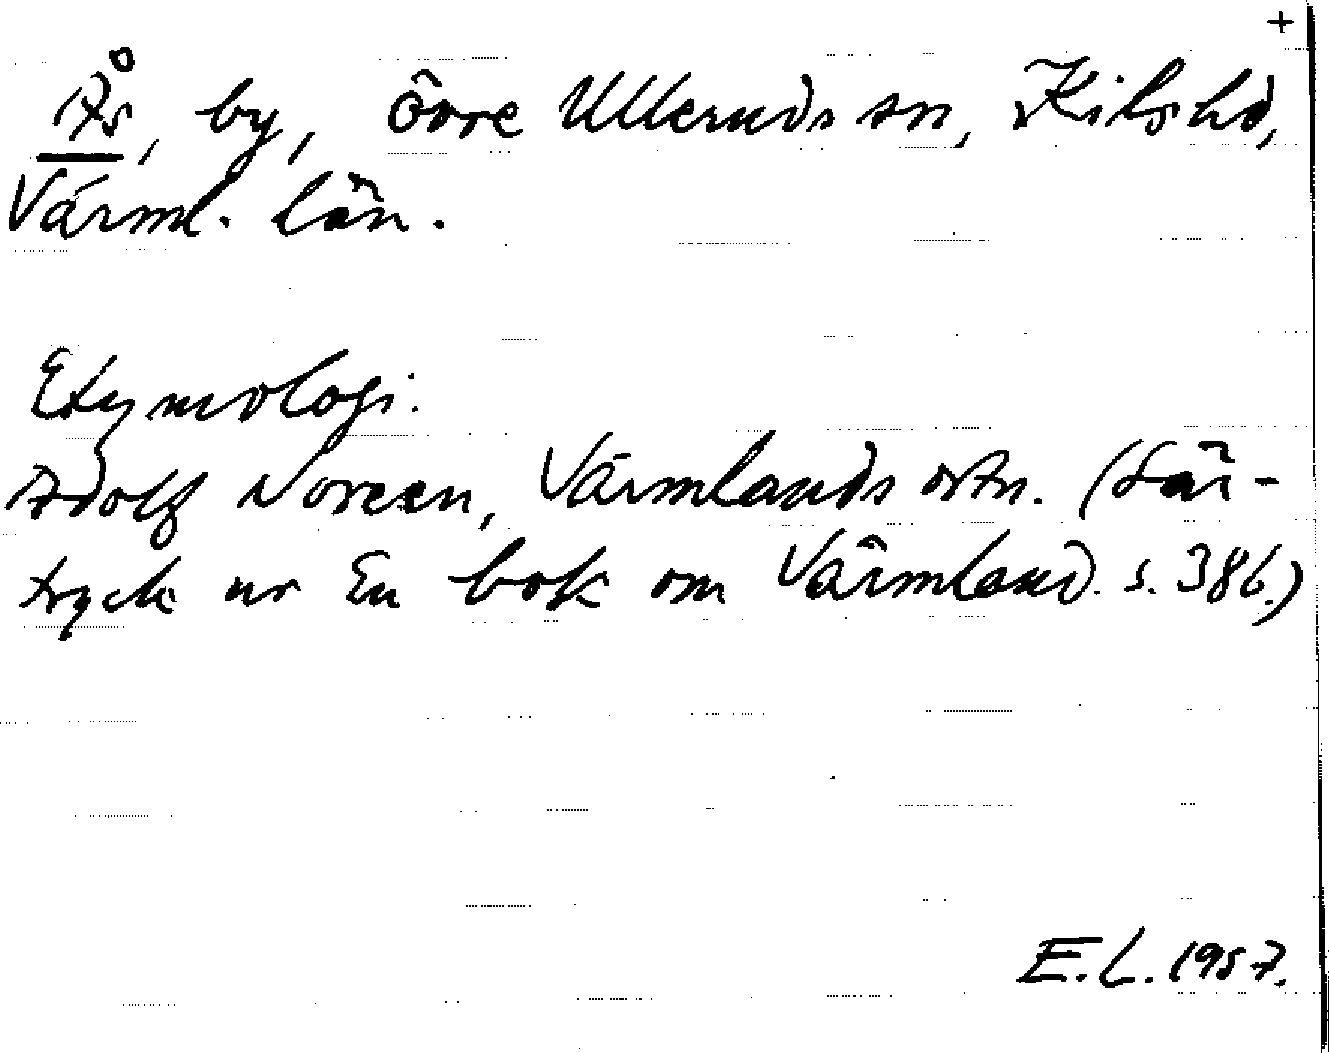 +
Ås, by, Övre Ulleruds sn, Kils hd,
Värml. län.
Etymologi.
Adolf Noreen, Värmlands ortn. (Sär-
tryck ur En bok om Värmland. s. 386.)
E.L. 1957.